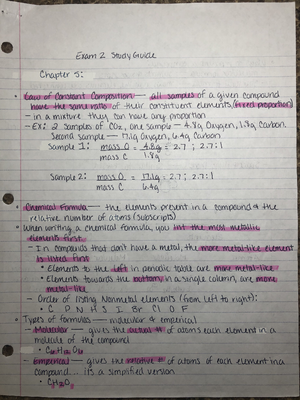 Exam 2 Study Guide
Chapter 5:
• Law of Constant Composition — all samples of a given compound
have the same ratio of their constituent elements (fixed proportion)
- in a mixture they can have any proportion
- EX: 2 samples of CO2, one sample - 4.8g Oxygen, 1.8g Carbon.
Second sample - 17.1g Oxygen, 6.4g Carbon
Sample 1: mass O = 4.8g = 2.7 ; 2.7:1
mass C 1.8g
Sample 2: mass O = 17.1g = 2.7 ; 2.7:1
mass C 6.4g
• Chemical Formula — the elements present in a compound & the
relative number of atoms (subscripts)
• When writing a chemical formula, you list the most metallic
elements first
- In compounds that don't have a metal, the more metal-like element
is listed first
• Elements to the left in periodic table are more metal-like
• Elements towards the bottom, in a single column, are more
metal-like
- Order of listing Nonmetal elements (from left to right):
• C P N H S I Br Cl O F
• Types of formulas — molecular & empirical
- Molecular — gives the actual # of atoms each element in a
molecule of the compound
- Empirical — gives the relative # of atoms of each element in a
compound... its a simplified version